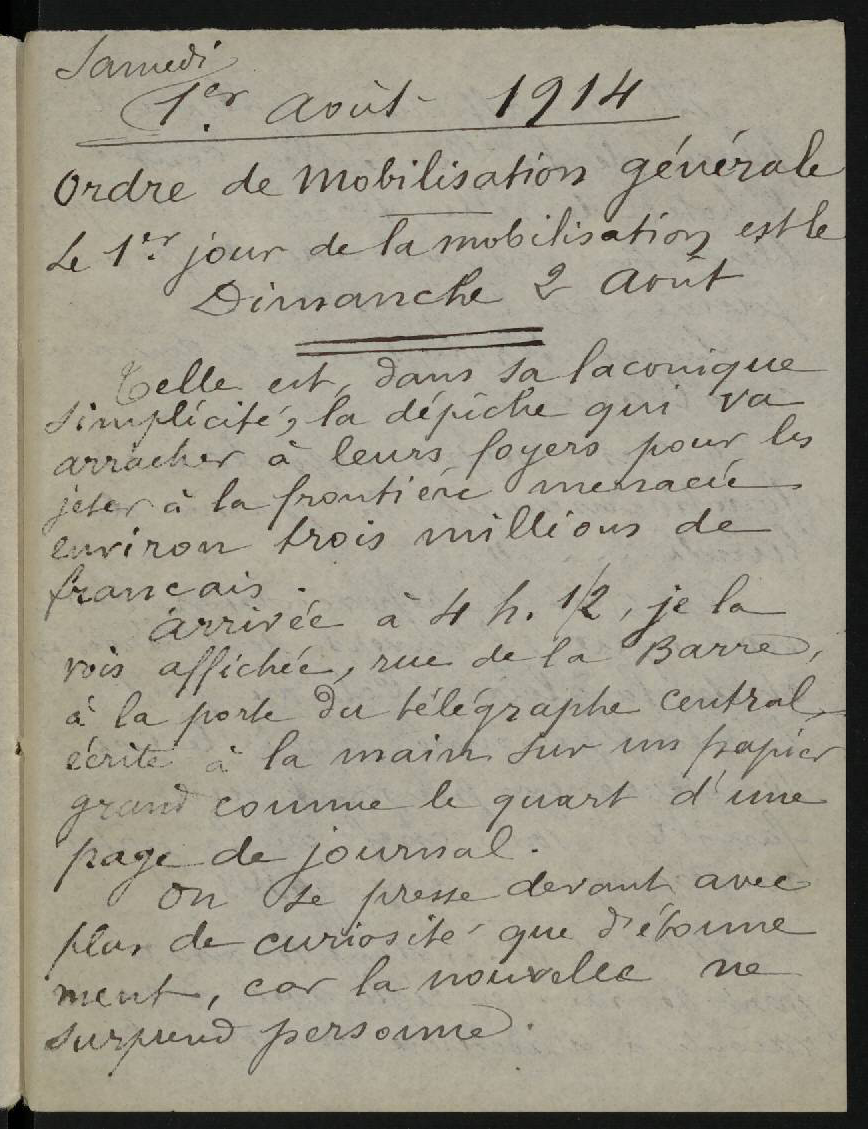 Samedi
1er Août 1914
Ordre de Mobilisation générale
Le 1er jour de la mobilisation est le
Dimanche 2 Août
Telle est, dans sa laconique
simplicité, la dépêche qui va
arracher à leurs foyers pour les
jeter à la frontière menacée
environ trois millions de
français.
Arrivée à 4 h. 1/2, je la
vois affichée, rue de la Barre,
à la porte du télégraphe central,
écrite à la main sur un papier
grand comme le quart d'une
page de journal.
On se presse devant avec
plus de curiosité que d'étonne
ment, car la nouvelle ne
surprend personne.